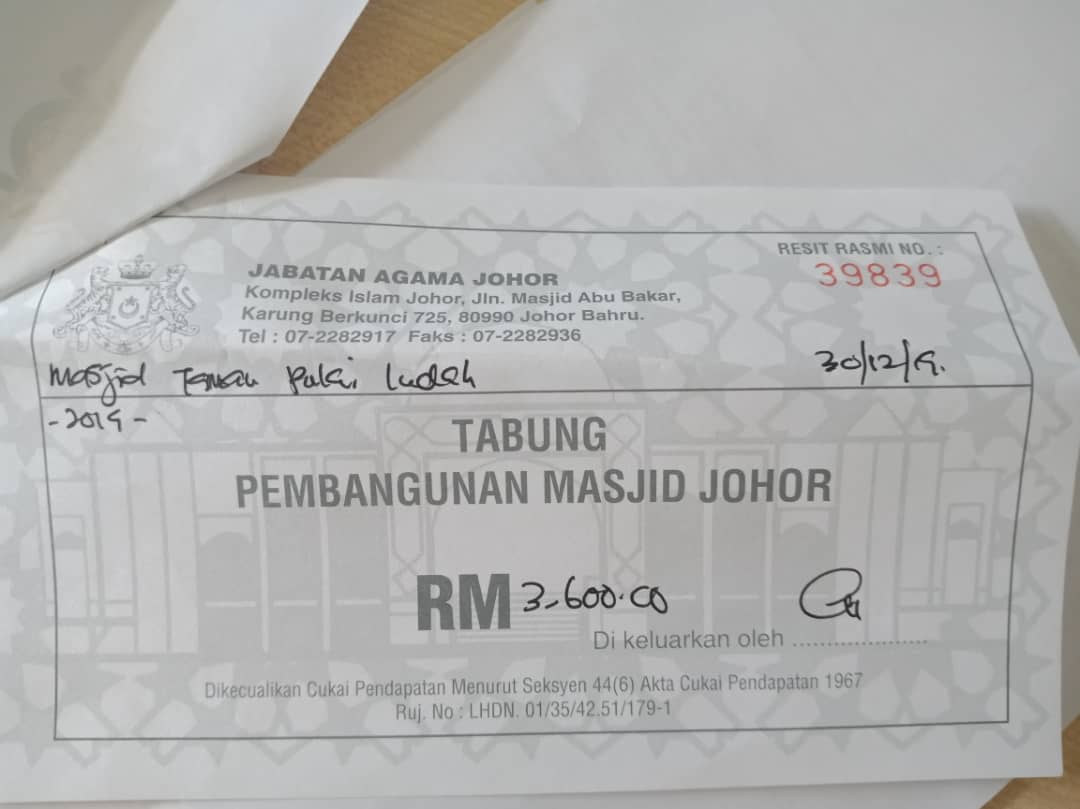 RESIT RASMI NO. :
39839
JABATAN AGAMA JOHOR
Kompleks Islam Johor, Jln. Masjid Abu Bakar,
Karung Berkunci 725, 80990 Johor Bahru.
Tel : 07-2282917 Faks : 07-2282936
Masjid Taman Pulai Indah
30/12/19.
-2019-
TABUNG
PEMBANGUNAN MASJID JOHOR
RM 3,600.00
Di keluarkan oleh ....................
Dikecualikan Cukai Pendapatan Menurut Seksyen 44(6) Akta Cukai Pendapatan 1967
Ruj. No : LHDN. 01/35/42.51/179-1